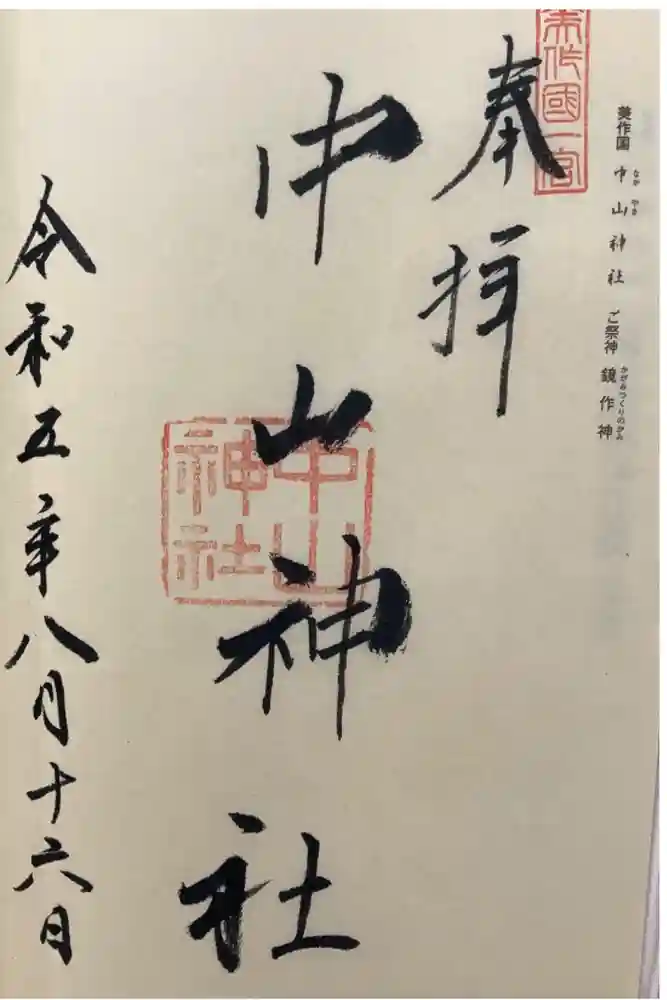 美作国 中山神社 ご祭神 鏡作神
なか やま かがみつくりのかみ
美作國一宮
奉拝
中山神社
中山
神社
令和五年八月十六日